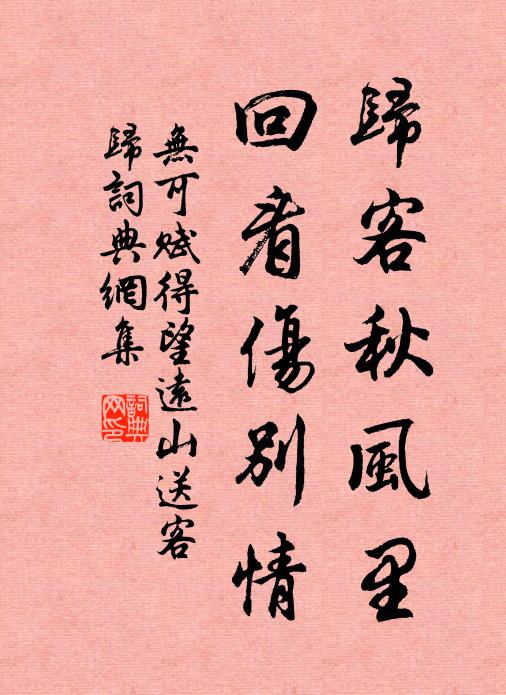 歸客秋風里
回看傷別情
無可賦得望遠山送客
歸詞典網集
詞典网印